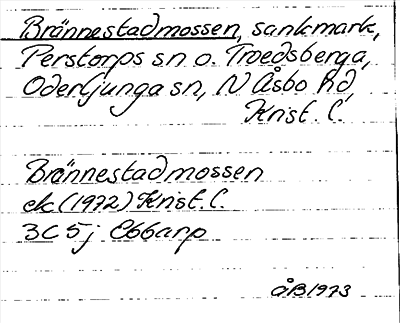 Brännestadmossen, sankmark,
Perstorps sn o. Troedsberga,
Oderljunga sn, N Åsbo hd,
Krist. l.
Brännestadmossen
ek (1972) Krist. l.
3C 5j Ebbarp
ÅB 1973